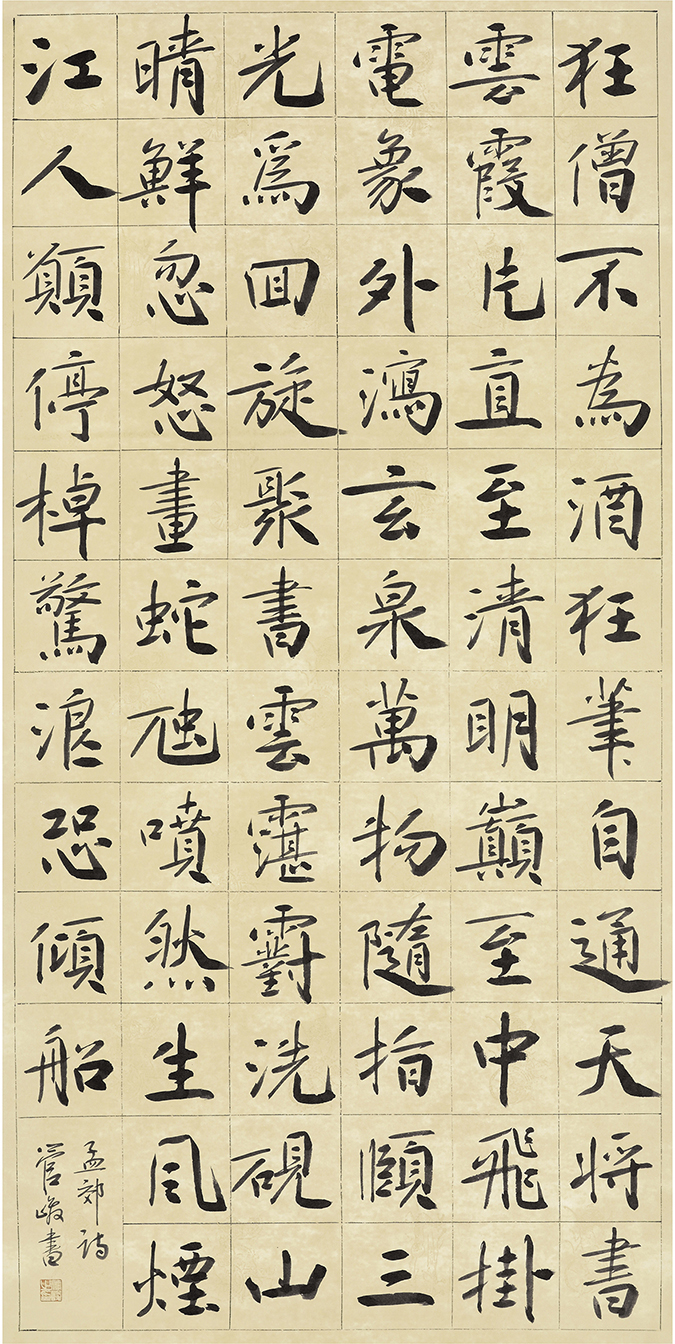 狂僧不為酒狂筆自通天將書
雲霞片直至清明巔至中飛掛
電象外瀉玄泉萬物隨指頤三
光爲囬旋聚書雲霮䨴洗硯山
晴鮮忽怒畫蛇虺噴然生風煙
江人願停棹驚浪恐傾船
孟郊詩
管峻書